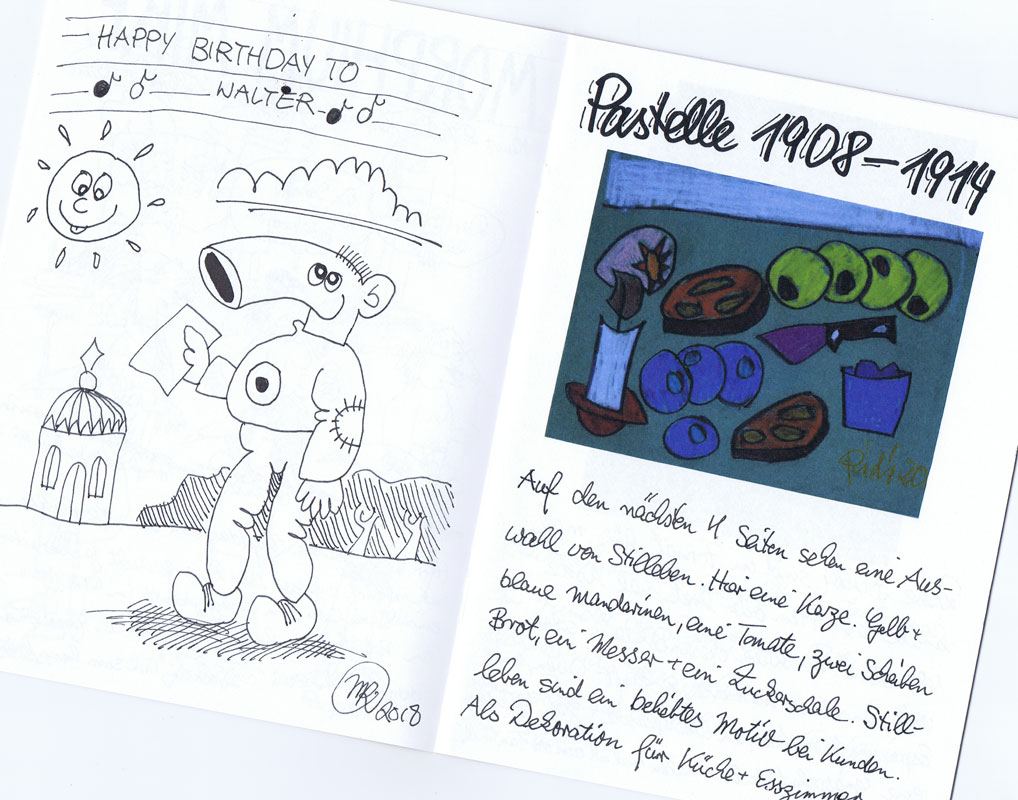 HAPPY BIRTHDAY TO
WALTER
MB 2018
Pastelle 1908–1914
Auf den nächsten 4 Seiten sehen eine Aus-
wahl von Stilleben. Hier eine Kerze. Gelb +
blaue Mandarinen, eine Tomate, zwei Scheiben
Brot, ein Messer + ein Zuckerschale. Still-
leben sind ein beliebtes Motiv bei Kunden.
Als Dekoration für Küche + Esszimmer